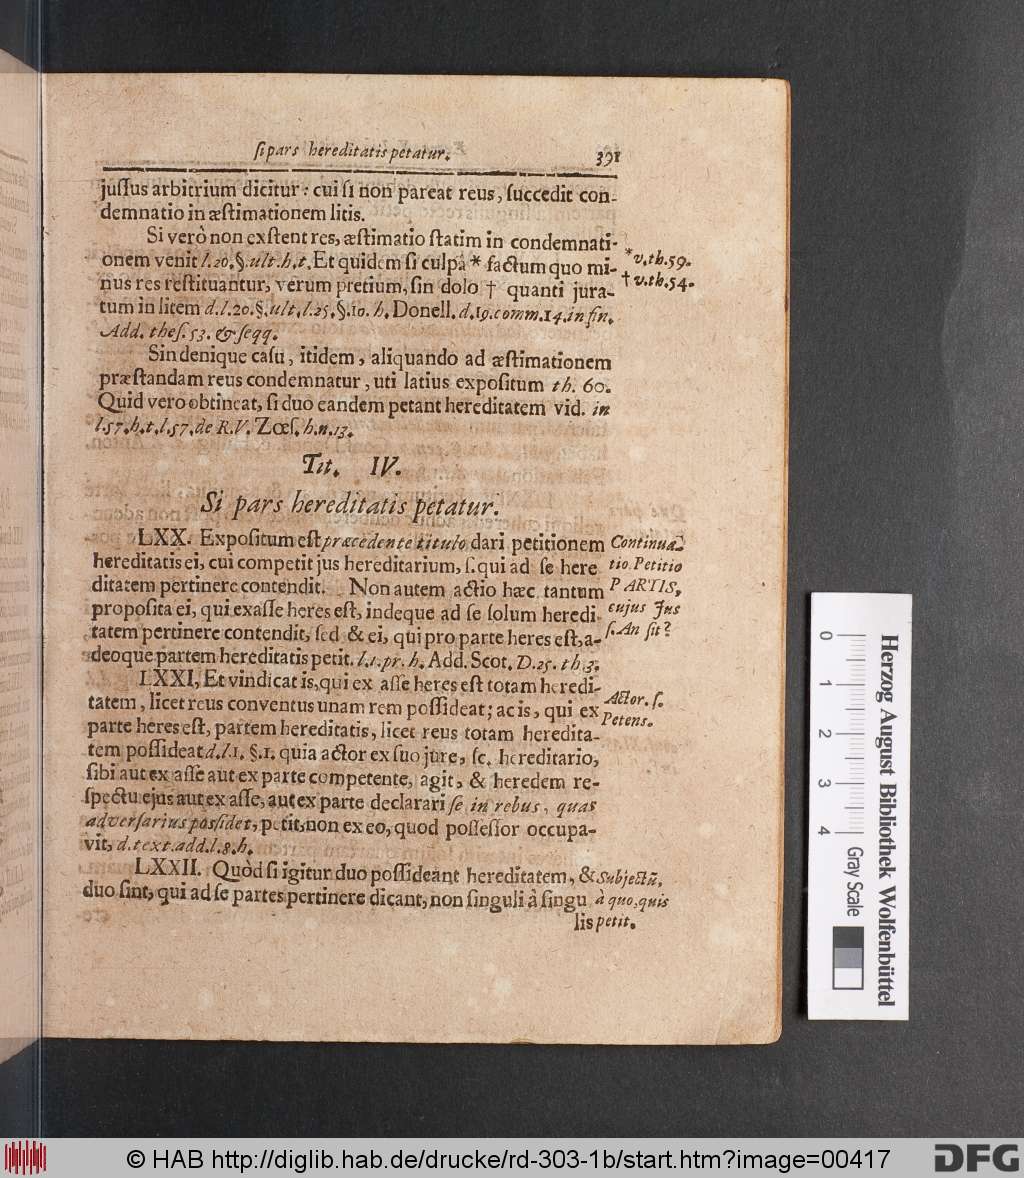 ſi pars hereditatis petatur. 391
juſſus arbitrium dicitur: cui ſi non pareat reus, ſuccedit con-
demnatio in æſtimationem litis.
Si verò non exſtent res, æſtimatio ſtatim in condemnati-
onem venit l. 20. §. ult. h. t. Et quidem ſi culpâ * factum quo mi-
* v. th. 59.
nus res reſtituantur, verum pretium, ſin dolo † quanti jura-
† v. th. 54.
tum in litem d. l. 20. §. ult. l. 25. §. 10. h. Donell. d. 19. comm. 14. in fin.
Add. theſ. 53. & ſeqq.
Sin denique caſu, itidem, aliquando ad æſtimationem
præſtandam reus condemnatur, uti latius expoſitum th. 60.
Quid vero obtineat, ſi duo eandem petant hereditatem vid. in
l. 57. h. t. l. 57. de R. V. Zœſ. h. n. 13.
Tit. IV.
Si pars hereditatis petatur.
LXX. Expoſitum eſt præcedente titulo dari petitionem
hereditatis ei, cui competit jus hereditarium, ſ. qui ad ſe here
ditatem pertinere contendit. Non autem actio hæc tantum
propoſita ei, qui exaſſe heres eſt, indeque ad ſe ſolum heredi-
tatem pertinere contendit, ſed & ei, qui pro parte heres eſt, a-
deoque partem hereditatis petit. l. 1. pr. h. Add. Scot. D. 25. th. 3.
Continua-
tio. Petitio
PARTIS,
cujus Jus
ſ. An ſit?
LXXI, Et vindicat is, qui ex aſſe heres eſt totam heredi-
tatem, licet reus conventus unam rem poſſideat; ac is, qui ex
parte heres eſt, partem hereditatis, licet reus totam heredita-
tem poſſideat d. l. 1. §. 1. quia actor ex ſuo jure, ſc. hereditario,
ſibi aut ex aſſe aut ex parte competente, agit, & heredem re-
ſpectu ejus aut ex aſſe, aut ex parte declarari ſe in rebus, quas
adverſarius poſſidet, petit, non ex eo, quod poſſeſſor occupa-
vit, d. text. add. l. 8. h.
Actor. ſ.
Petens.
LXXII. Quòd ſi igitur duo poſſideant hereditatem, &
duo ſint, qui ad ſe partes pertinere dicant, non ſinguli à ſingu
lis
Subjectũ,
à quo, quis
petit.
0 1 2 3 4
Gray Scale
Herzog August Bibliothek Wolfenbüttel
© HAB http://diglib.hab.de/drucke/rd-303-1b/start.htm?image=00417
DFG